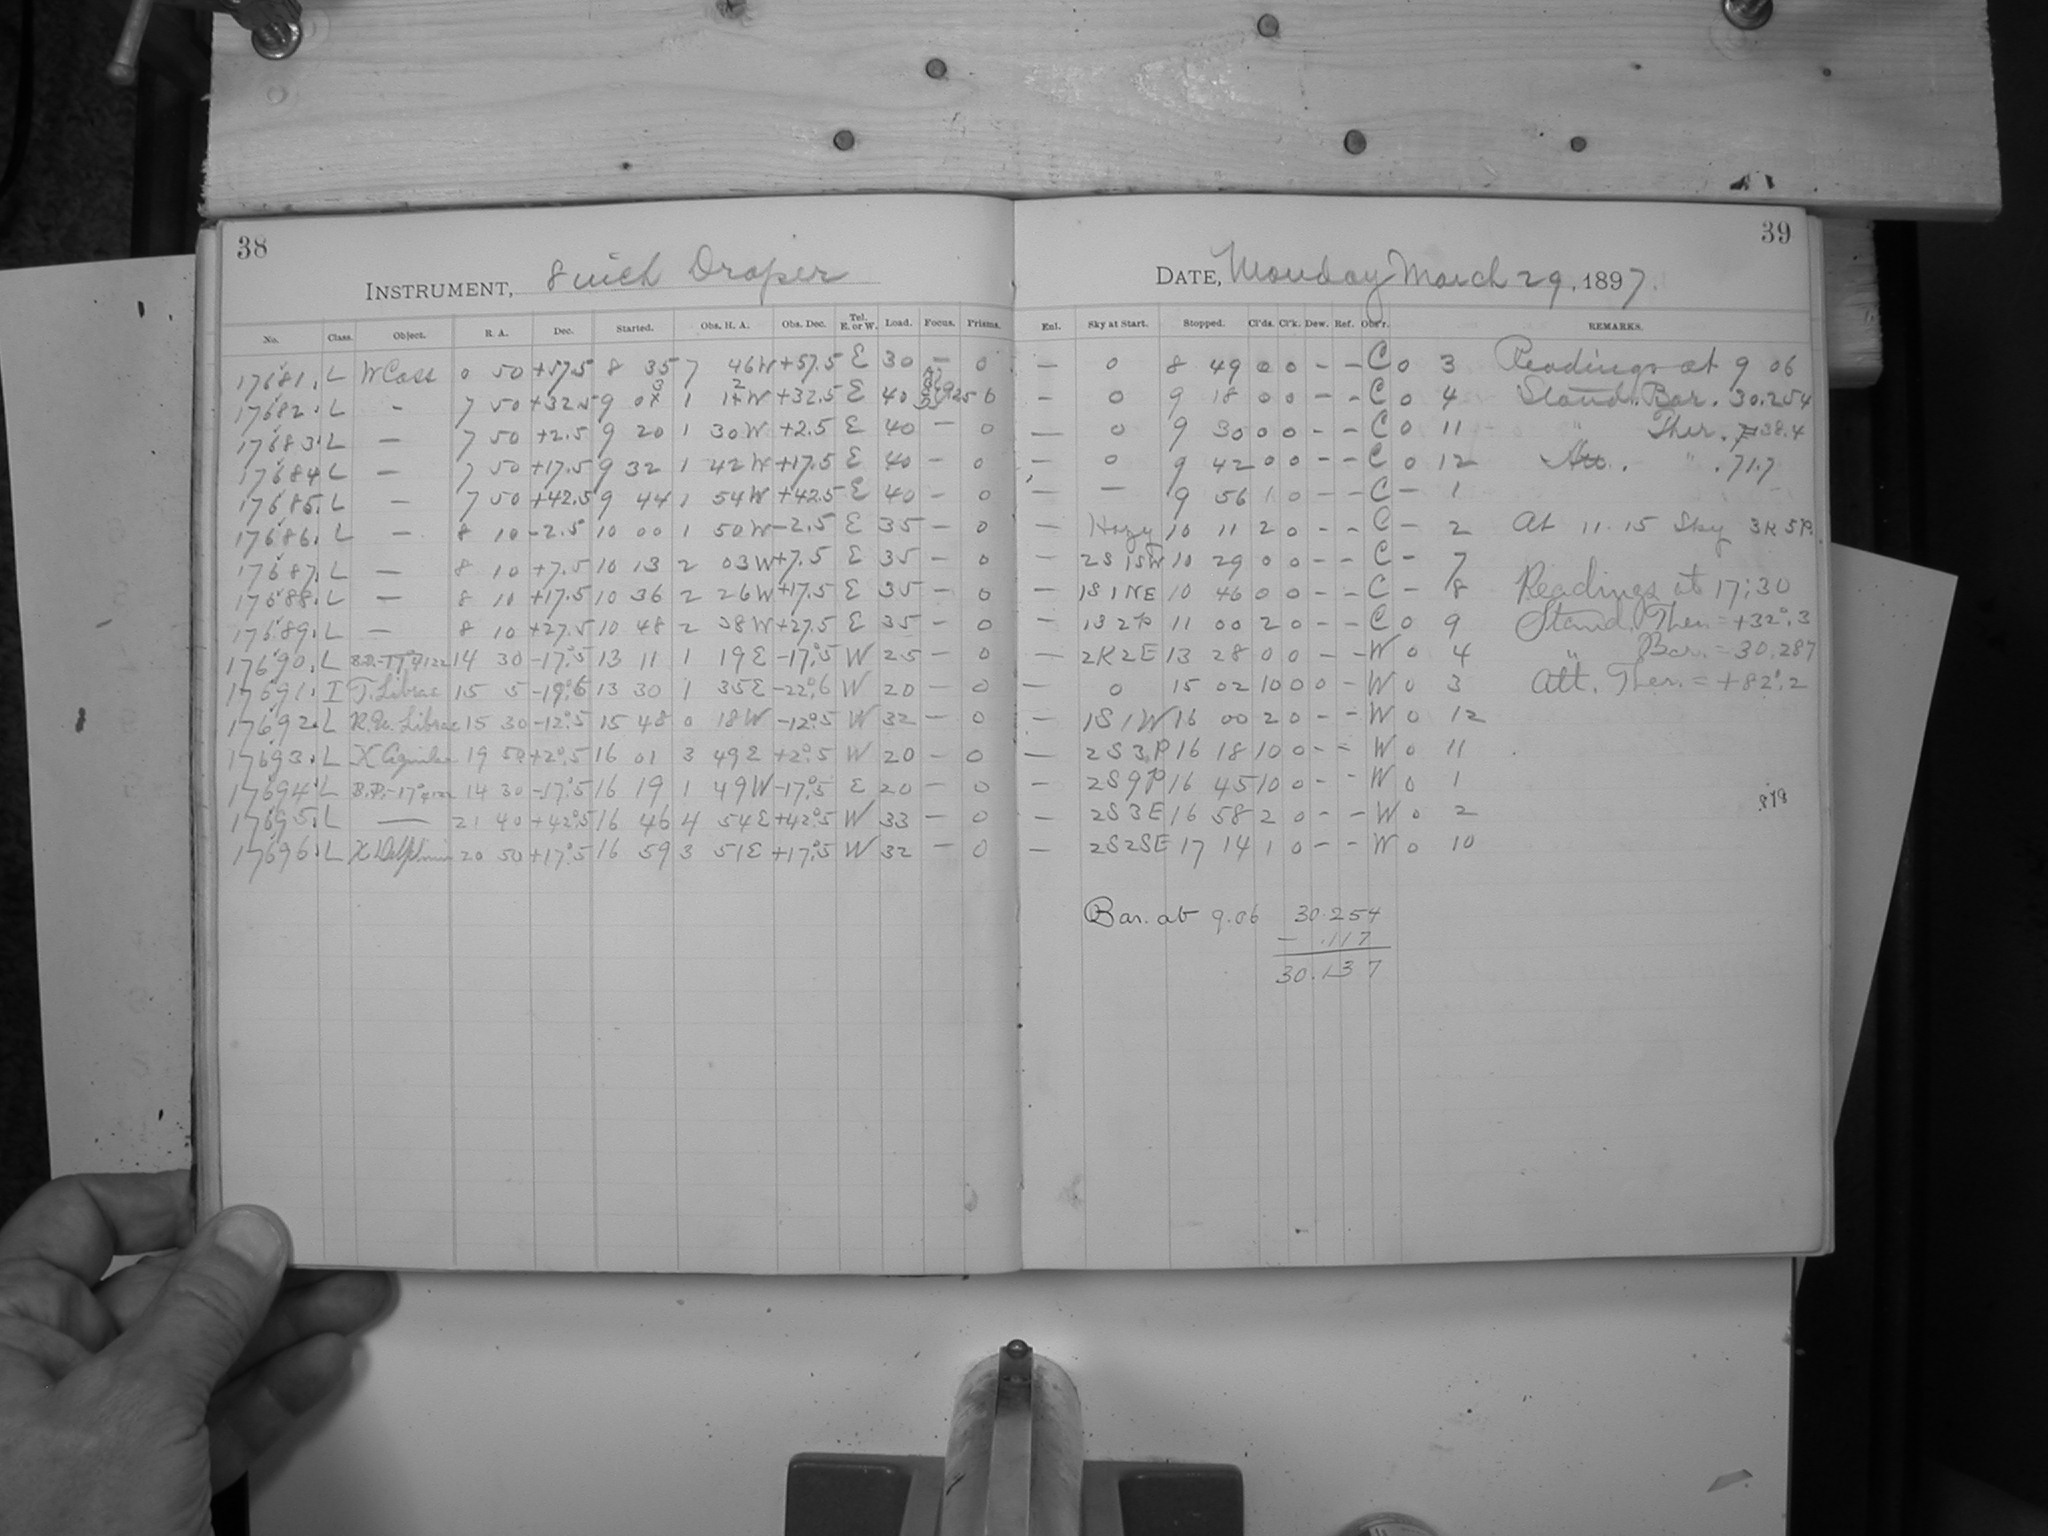 38
INSTRUMENT, 8 inch Draper
No. Class. Object. R. A. Dec. Started. Obs. H. A. Obs. Dec. Tel. E. or W. Load. Focus. Prisms.
17681. L W Cass 0 50 +57.5 8 35 7 46W +57.5 E 30 - 0
17682. L - 7 50 +32.5 9 1 W +32.5 E 40
17683. L - 7 50 +2.5 9 20 1 30W +2.5 E 40 - 0
17684. L - 7 50 +17.5 9 32 1 42W +17.5 E 40 - 0
17685. L - 7 50 +42.5 9 44 1 54W +42.5 E 40 - 0
17686. L - 8 10 -2.5 10 00 1 50W -2.5 E 35 - 0
17687. L - 8 10 +7.5 10 13 2 03W +7.5 E 35 - 0
17688. L - 8 10 +17.5 10 36 2 26W +17.5 E 35 - 0
17689. L - 8 10 +27.5 10 48 2 38W +27.5 E 35 - 0
17690. L B.D.-17°4122 14 30 -17°.5 13 11 1 19E -17°.5 W 25 - 0
17691. I T. Librae 15 5 -19°.6 13 30 1 35E -22°.6 W 20 - 0
17692. L R.U. Librae 15 30 -12°.5 15 48 0 18W -12°.5 W 32 - 0
17693. L X Aquilae 19 50 +2°.5 16 01 3 49E +2°.5 W 20 - 0
17694. L B.D.-17°4122 14 30 -17°.5 16 19 1 49W -17°.5 E 20 - 0
17695. L - 21 40 +42°.5 16 46 4 54E +42°.5 W 33 - 0
17696. L X Delphini 20 50 +17°.5 16 59 3 51E +17°.5 W 32 - 0
39
DATE, Monday March 29, 1897.
Enl. Sky at Start. Stopped. Cl'ds. Cl'k. Dew. Ref. Obs'r. REMARKS.
- 0 8 49 0 0 - - C 0 3 Readings at 9 06
- 0 9 18 0 0 - - C 0 4 Stand. Bar. 30.254
- 0 9 30 0 0 - - C 0 11 " Ther. 38.4
- 0 9 42 0 0 - - C 0 12 Att. " 71.7
- - 9 56 1 0 - - C - 1
- Hazy 10 11 2 0 - - C - 2 At 11 15 Sky 3K5P.
- 2S1SW 10 29 0 0 - - C - 7
- 1S1NE 10 46 0 0 - - C - 8 Readings at 17:30
- 1S2P 11 00 2 0 - - C 0 9 Stand. Ther. = +32°.3
- 2K2E 13 28 0 0 - - W 0 4 " Bar. = 30.287
- 0 15 02 10 0 0 - W 0 3 Att. Ther. = +82°.2
- 1S1W 16 00 2 0 - - W 0 12
- 2S3P 16 18 10 0 - - W 0 11
- 2S9P 16 45 10 0 - - W 0 1
- 2S3E 16 58 2 0 - - W 0 2
- 2S2SE 17 14 1 0 - - W 0 10
Bar. at 9.06 30.254
- .117
30.137